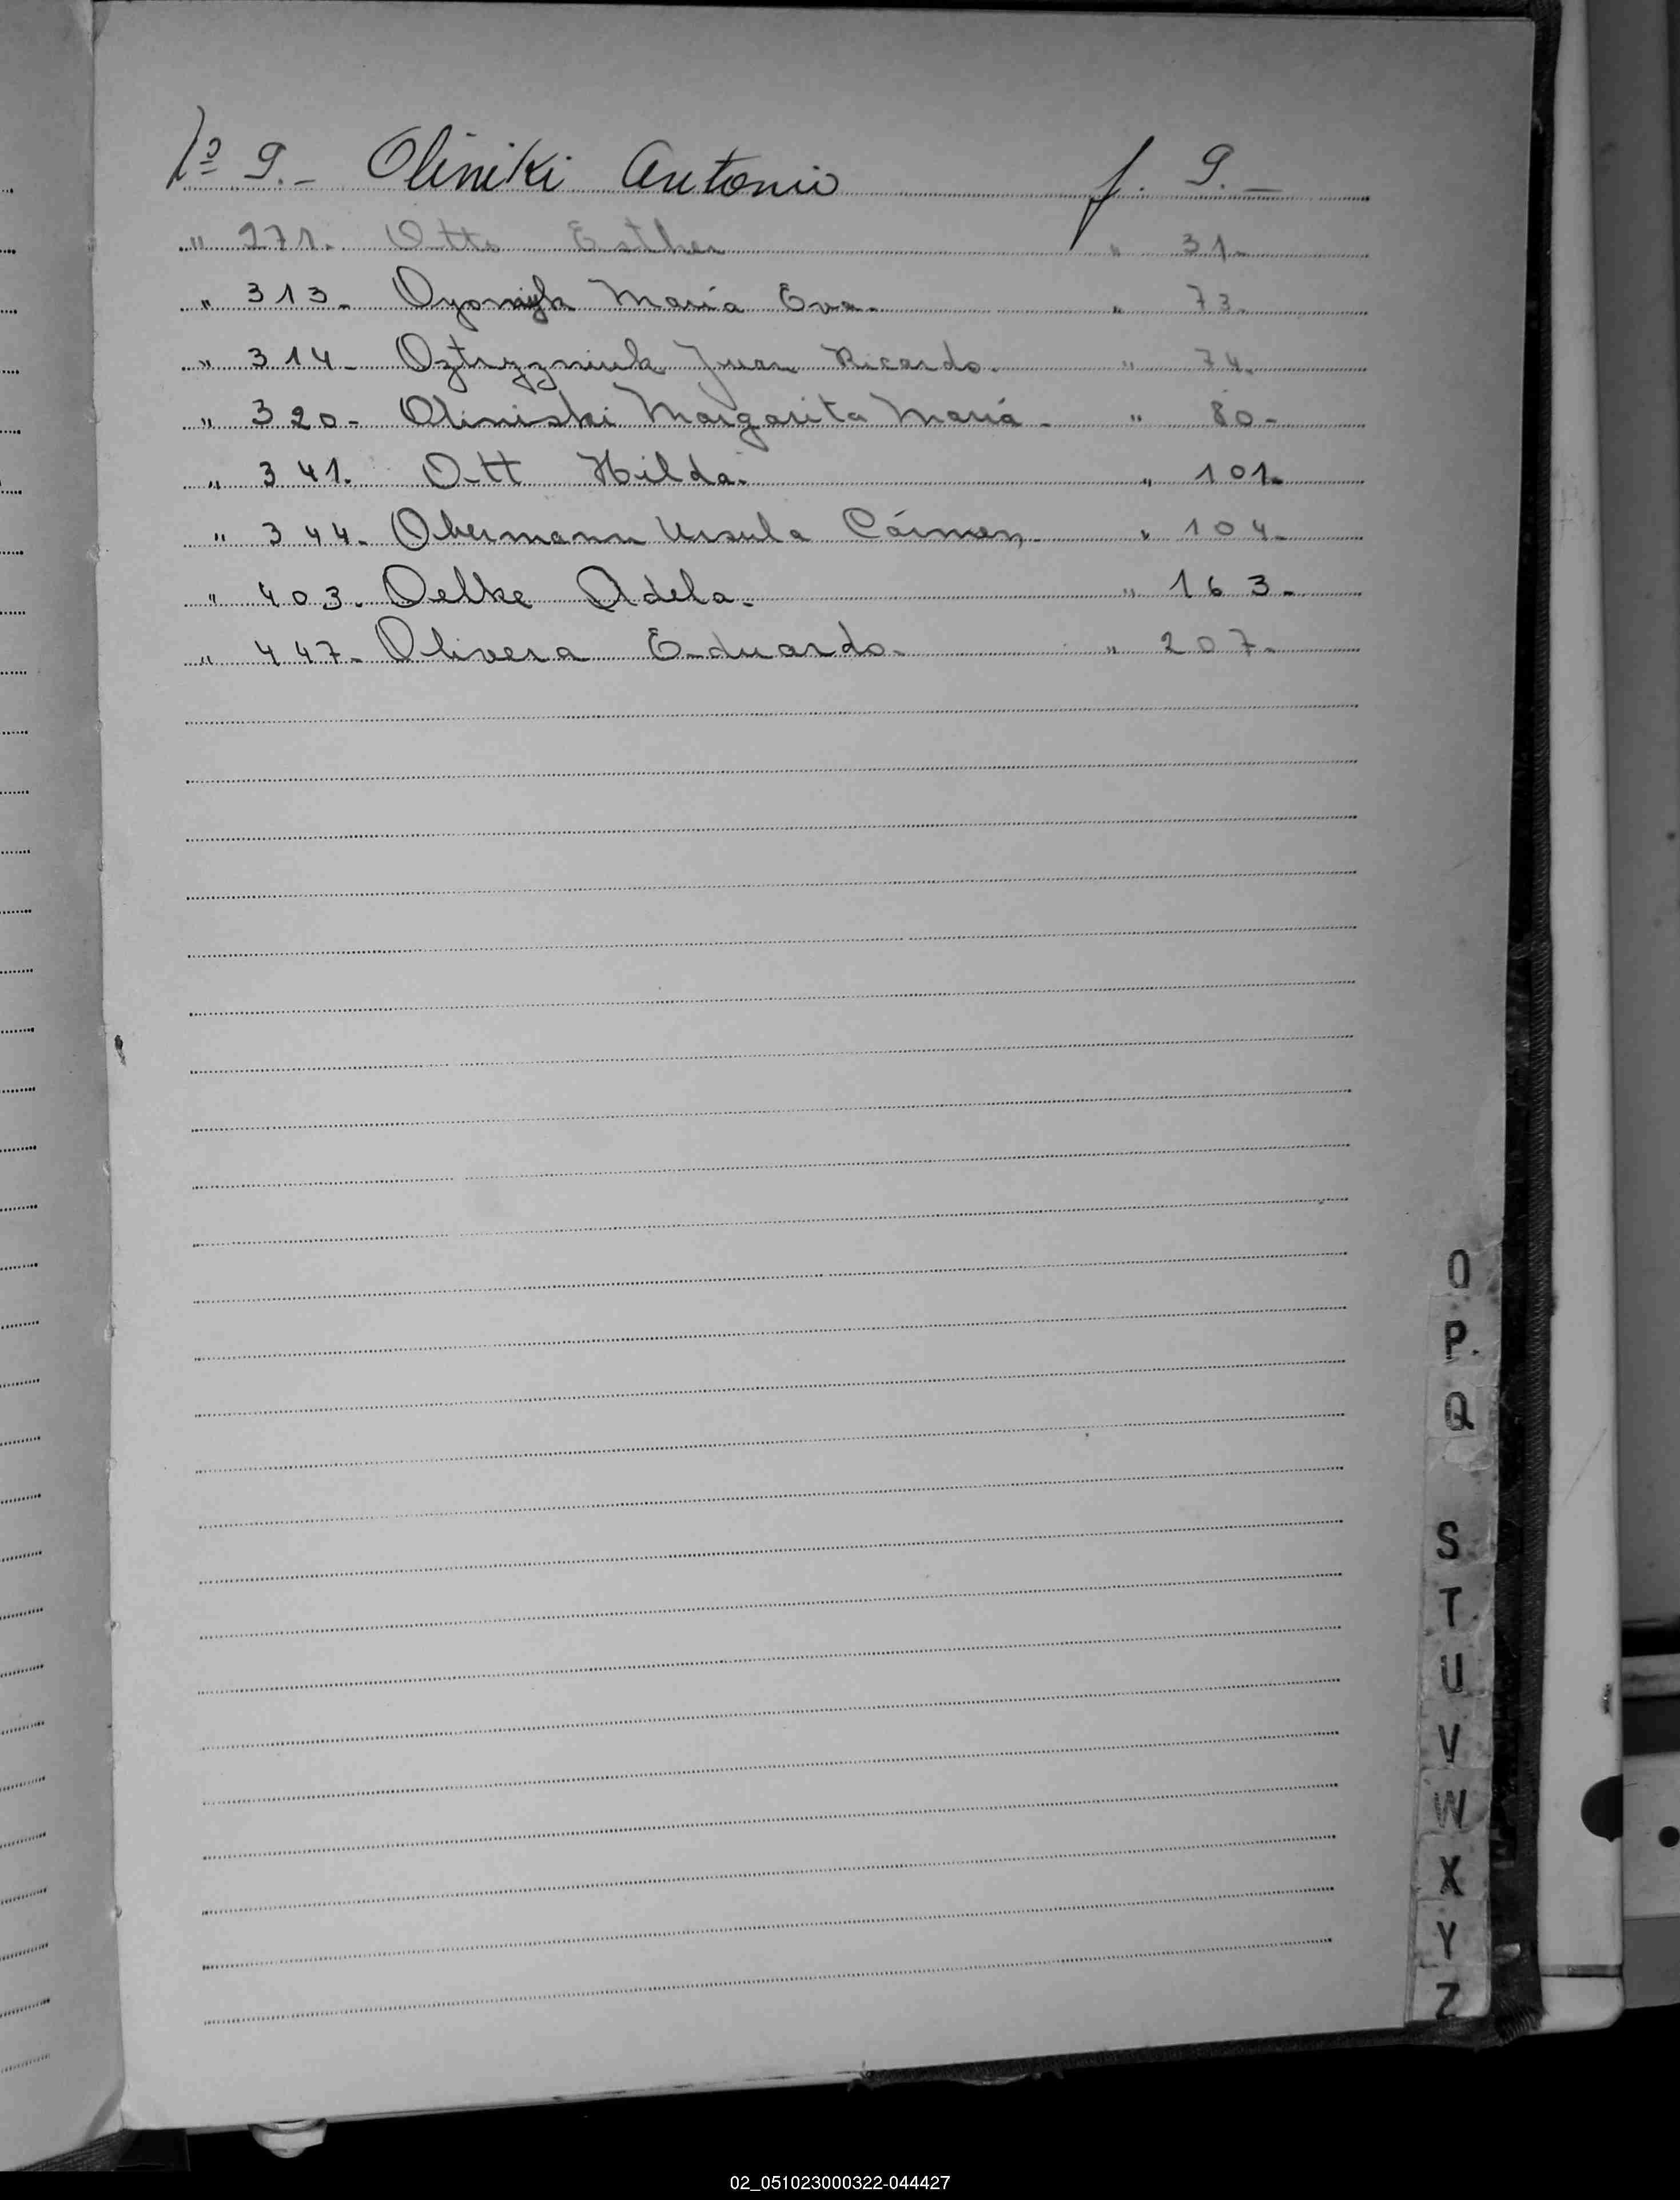 Nº 9.- Oliniki Antonio f. 9.-
" 271. Otto Esther " 31-
" 313- María Eva. " 73-
" 314- Oztryzniuk Juan Ricardo. " 74-
" 320- Oliniski Margarita María - " 80-
" 341. Ott Hilda. " 101-
" 344- Obermann Ursula Cármen, - " 104-
" 403. Oelke Adela. " 163-
" 447- Olivera Eduardo. " 207-
O
P.
Q
S
T
U
V
W
X
Y
Z
02_051023000322-044427